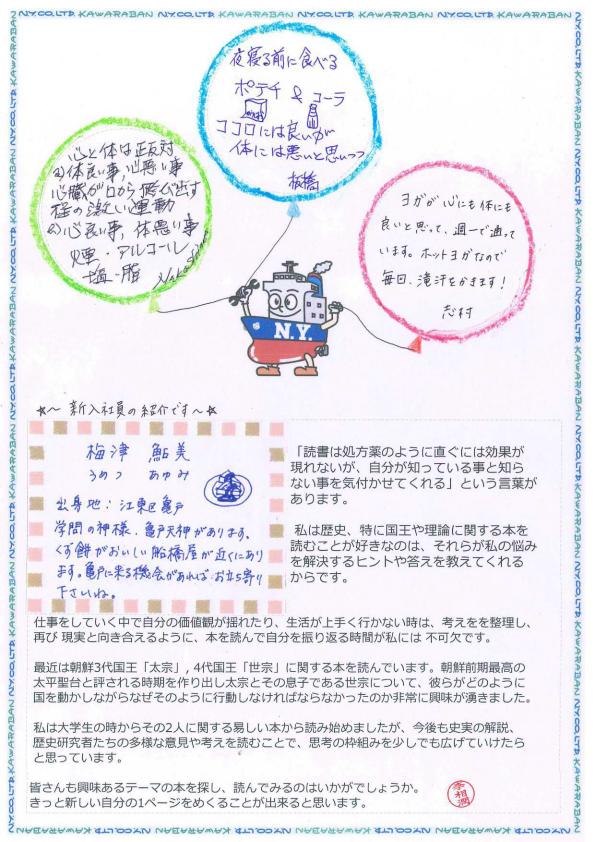 N.Y.CO.,LTD. KAWARABAN
夜寝る前に食べる
ポテチ & コーラ
ココロには良いが
体には悪いと思いつつ
板橋
心と体は正反対
体良い事、心悪い事
心臓が口から飛び出す
程の激しい運動
心良い事、体悪い事
煙・アルコール
塩・脂
ヨガが心にも体にも
良いと思って、週一で通って
います。ホットヨガなので
毎回、滝汗をかきます!
志村
N.Y.
☆~ 新入社員の紹介です~☆
梅津 鮎美
うめつ あゆみ
出身地:江東区亀戸
学問の神様、亀戸天神があります。
くず餅がおいしい船橋屋が近くにあり
ます。亀戸に来る機会があればお立ち寄り
下さいね。
「読書は処方薬のように直ぐには効果が
現れないが、自分が知っている事と知ら
ない事を気付かせてくれる」という言葉が
あります。
私は歴史、特に国王や理論に関する本を
読むことが好きなのは、それらが私の悩み
を解決するヒントや答えを教えてくれる
からです。
仕事をしていく中で自分の価値観が揺れたり、生活が上手く行かない時は、考えをを整理し、
再び 現実と向き合えるように、本を読んで自分を振り返る時間が私には 不可欠です。
最近は朝鮮3代国王「太宗」, 4代国王「世宗」に関する本を読んでいます。朝鮮前期最高の
太平聖台と評される時期を作り出し太宗とその息子である世宗について、彼らがどのように
国を動かしながらなぜそのように行動しなければならなかったのか非常に興味が湧きました。
私は大学生の時からその2人に関する易しい本から読み始めましたが、今後も史実の解説、
歴史研究者たちの多様な意見や考えを読むことで、思考の枠組みを少しでも広げていけたら
と思っています。
皆さんも興味あるテーマの本を探し、読んでみるのはいかがでしょうか。
きっと新しい自分の1ページをめくることが出来ると思います。
李相潤